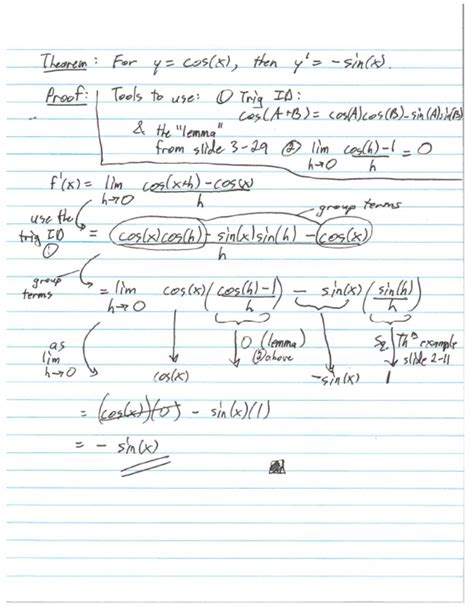 Theorem: For y = cos(x), then y' = -sin(x).
Proof: Tools to use: ① Trig ID:
cos(A+B) = cos(A)cos(B) - sin(A)sin(B)
& the "lemma"
from slide 3-29 ② lim h→0 cos(h)-1 / h = 0
f'(x) = lim h→0 cos(x+h) - cos(x) / h
group terms
use the
trig ID
①
= cos(x)cos(h) - sin(x)sin(h) - cos(x) / h
group
terms
= lim h→0 cos(x) (cos(h)-1 / h) - sin(x) (sin(h) / h)
as
lim
h→0
cos(x)
0 (lemma)
② above
-sin(x)
1
Sq. Thm example
slide 2-11
= (cos(x))(0) - sin(x)(1)
= - sin(x)